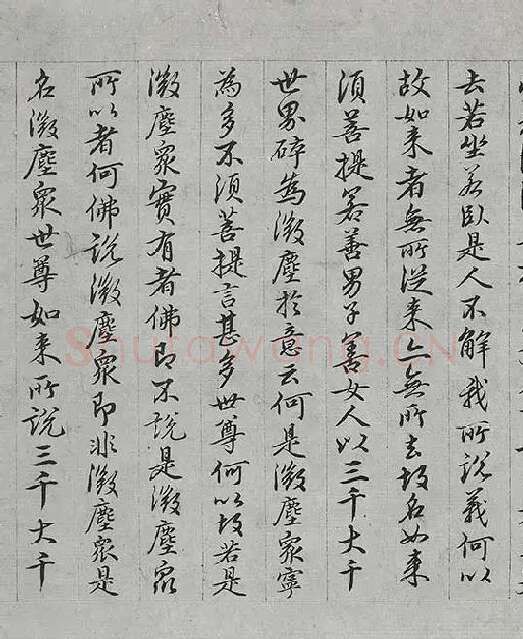 去若坐若臥是人不解我所說義何以
故如来者無所從来亦無所去故名如来
須菩提若善男子善女人以三千大千
世界碎為微塵於意云何是微塵眾寧
為多不須菩提言甚多世尊何以故若是
微塵眾實有者佛即不說是微塵眾
所以者何佛說微塵眾即非微塵眾是
名微塵眾世尊如来所說三千大千
Shufawang.CN